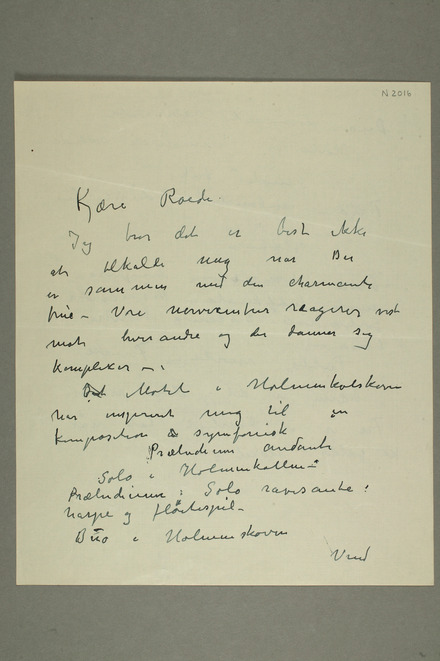 N 2016
Kjære Roede.
Jeg tror det er best ikke
at tilkalle mig når De
er sammen med den charmante
frue – Vore nervecentrer reagerer vist
mot hverandre og der danner sig
komplekser –.
Møtet i Holmenkolskoven
har inspireret mig til en
komposition symfonisk
Præludium andante
Solo i Holmenkollen –
Præludium: Solo ravisante:
harpe og fløitespil –
Duo i Holmenskoven